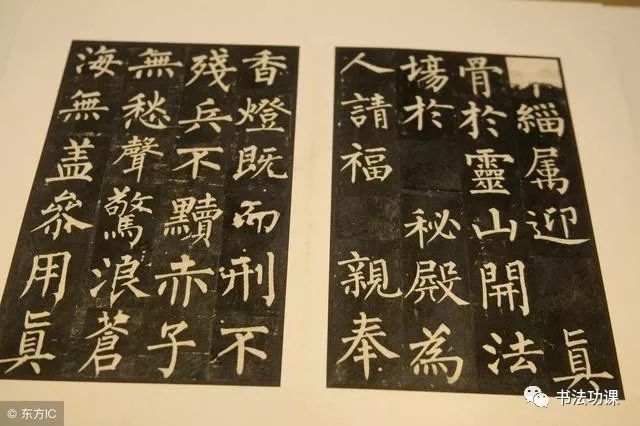 緇属迎真
骨於靈山開法
場於秘殿為
人請福親奉
香燈既而刑不
殘兵不黷赤子
無愁聲驚浪蒼
海無盖叅用真
© 东方IC
书法功课